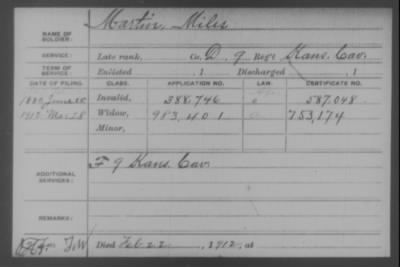 NAME OF SOLDIER: Martin, Miles
SERVICE: Late rank, Co. D, 9 Reg't Kans. Cav.
TERM OF SERVICE: Enlisted , 1 Discharged , 1
DATE OF FILING. CLASS. APPLICATION NO. LAW. CERTIFICATE NO.
1880 June Invalid, 388,746 587,048
1912 Mar 28 Widow, 983,401 753,174
Minor,
ADDITIONAL SERVICES: F 9 Kans. Cav.
REMARKS:
Died Feb 22, 1912, at